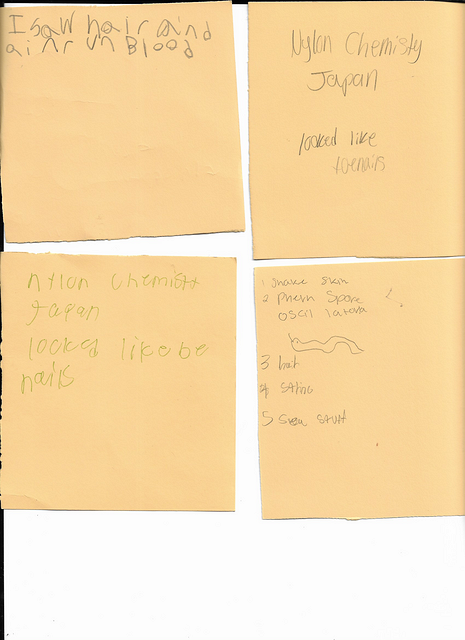 I saw hair aind
ainr un Blood
Nylon Chemisty
Japan
looked like
toenairs
nylon chemistt
Jaqan
looked like be
nails
1 snake skin
2 Phern Spore
oscil latora
3 bat
4 String
5 Sea stuff